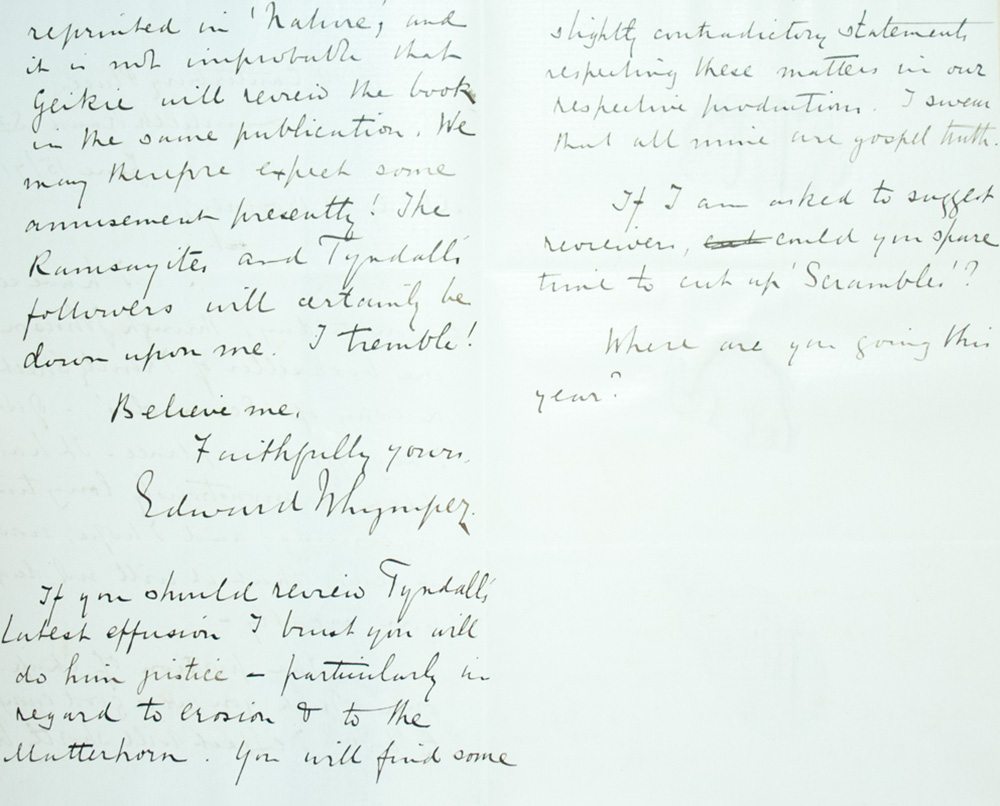 reprinted in 'Nature', and
it is not improbable that
Geikie will review the book
in the same publication. We
may therefore expect some
amusement presently! The
Ramsayites and Tyndall's
followers will certainly be
down upon me. I tremble!
Believe me,
Faithfully yours,
Edward Whymper.
If you should review Tyndall's
latest effusion I trust you will
do him justice – particularly in
regard to erosion & to the
Matterhorn. You will find some
slightly contradictory statements
respecting these matters in our
respective productions. I swear
that all mine are gospel truth.
If I am asked to suggest
reviewers, could you spare
time to cut up 'Scrambles'?
Where are you going this
year?